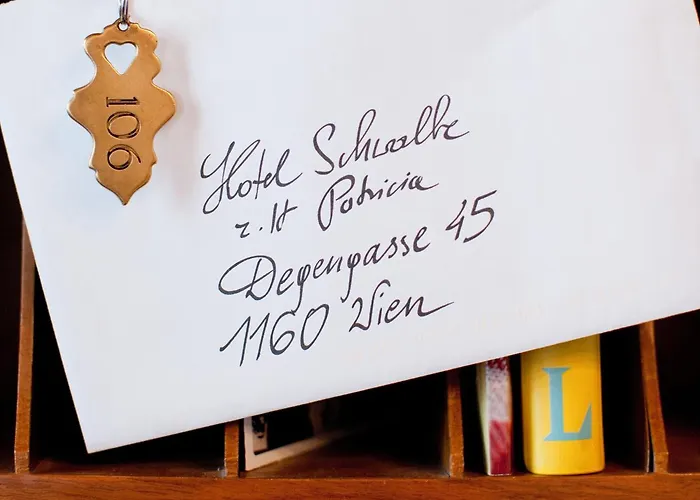 106
Hotel Schwalbe
z. H Patricia
Degengasse 45
1160 Wien
L